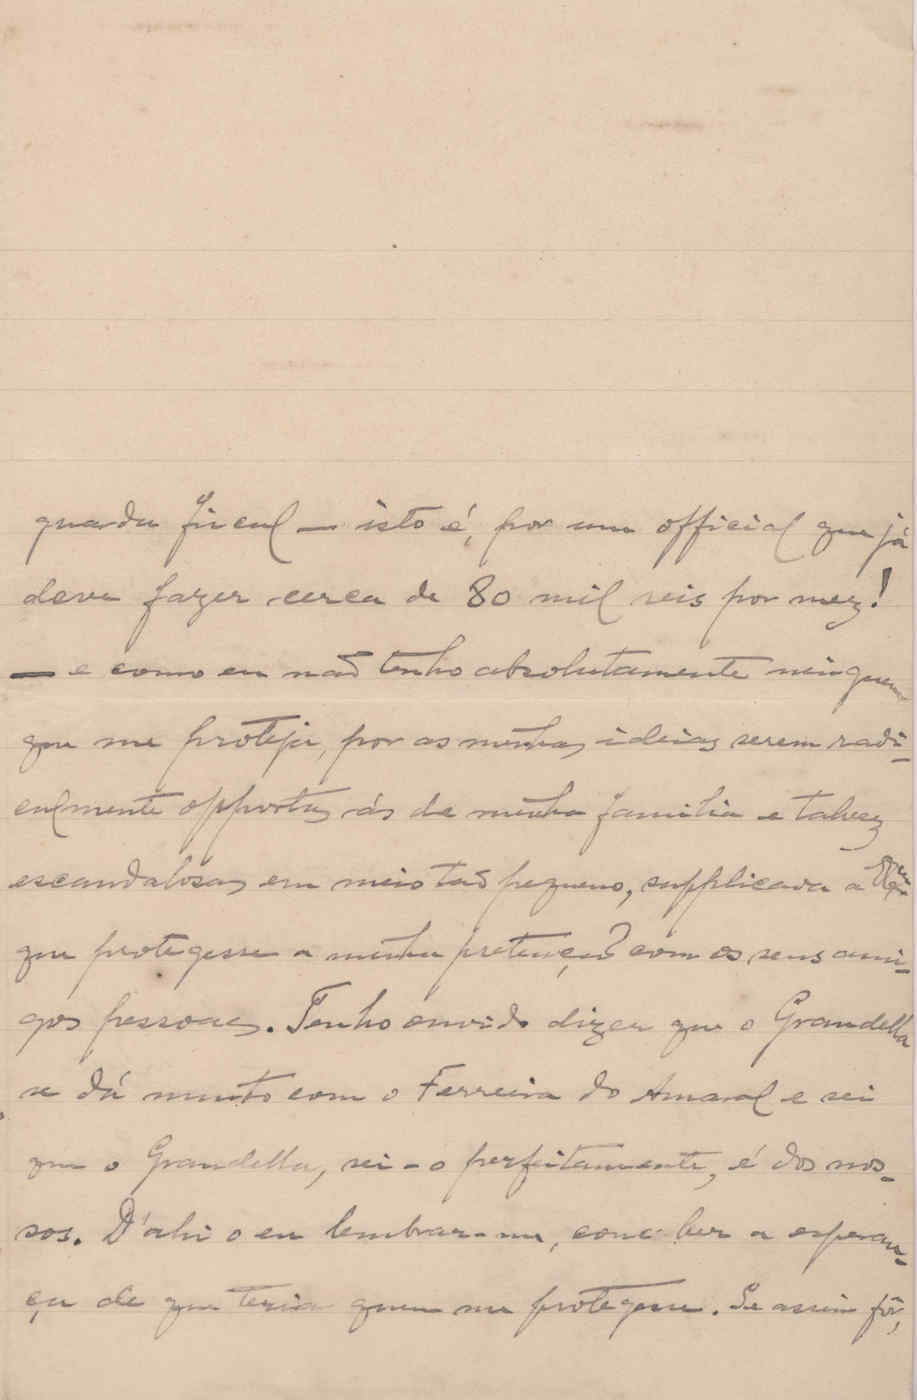 guarda fiscal — isto é, por um official que já
deve fazer cerca de 80 mil reis por mez!
— e como eu não tenho absolutamente ninguem
que me proteja, por as minhas ideias serem radi-
calmente oppostas ás de minha familia e talvez
escandalosas em meio tão pequeno, supplicava a V. Ex.cia
que protegesse a minha pretenção com os seus ami-
gos pessoaes. Tenho ouvido dizer que o Grandella
se dá muito com o Ferreira do Amaral e sei
que o Grandella, sei-o perfeitamente, é dos nos-
sos. D'ahi o eu lembrar-me, conceber a esperan-
ça de que teria quem me protegesse. Se assim fôr,